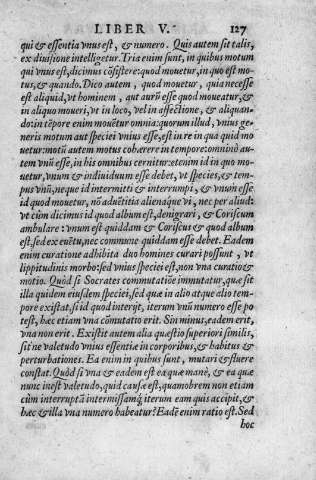 LIBER V. 127
qui & essentia vnus est, & numero. Quis autem sit talis,
ex diuisione intelligetur. Tria enim sunt, in quibus motum
qui vnus est, dicimus cōsistere: quod mouetur, in quo est mo-
tus, & quando. Dico autem, quod mouetur, quia necesse
est aliquid, vt hominem, aut aurū esse quod moueatur, &
in aliquo moueri, vt in loco, vel in affectione, & aliquan-
do: in tēpore enim mouētur omnia: quorum illud, vnius ge-
neris motum aut speciei vnius esse, est in re in qua quid mo
uetur: motū autem motus cohærere in tempore: omninò au-
tem vnū esse, in his omnibus cernitur: etenim id in quo mo-
uetur, vnum & indiuiduum esse debet, vt species, & tem-
pus vnū, neque id intermitti & interrumpi, & vnum esse
id quod mouetur, nō aduētitia alienaque vi, nec per aliud:
vt cùm dicimus id quod album est, denigrari, & Coriscum
ambulare: vnum est quiddam & Coriscus & quod album
est. sed ex euētu, nec commune quiddam esse debet. Eadem
enim curatione adhibita duo homines curari possunt, vt
lippitudinis morbo: sed vnius speciei est, non vna curatio &
motio. Quòd si Socrates commutatiōe immutatur, quæ sit
illa quidem eiusdem speciei, sed quæ in alio atque alio tem-
pore existat, si id quod interijt, iterum vnū numero esse po
test, hæc etiam vna cōmutatio erit. Sin minus, eadem erit,
vna non erit. Existit autem alia quæstio superiori similis,
sit'ne valetudo vnius essentiæ in corporibus, & habitus &
perturbationes. Ea enim in quibus sunt, mutari & fluere
constat. Quòd si vna & eadem est ea quæ manè, & ea quæ
nunc inest valetudo, quid causæ est, quamobrem non etiam
cùm interruptā intermissamq; iterum eam quis accipit, &
hæc & illa vna numero habeatur? Eadē enim ratio est. Sed
hoc